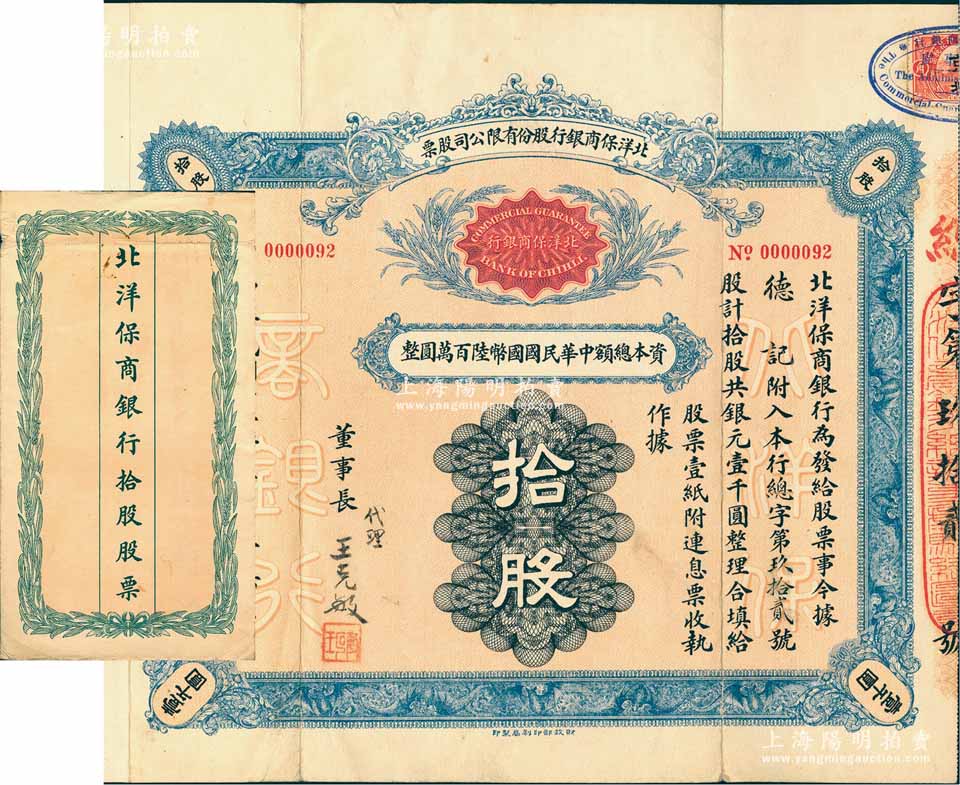 上海陽明拍賣
www.yangmingauction.com
北洋保商銀行拾股股票
票股司公限有份股行銀商保洋北
拾股
拾股
COMMERCIAL GUARANTEE
行銀商保洋北
BANK OF CHIHLI.
0000092
Nº 0000092
整圓萬百陸幣國國民華中額總本資
北洋保商銀行為發給股票事今據
德記附入本行總字第玖拾貳號
股計拾股共銀元壹千圓整理合填給
股票壹紙附連息票收執
作據
拾股
董事長
代理
王克敏
北洋保
商銀行
壹千圓
壹千圓
印製局刷印部政財
The Commercial Guar
總字第玖拾貳號
上海陽明拍賣
www.yangmingauction.com
上海陽明拍賣
www.yangmingauction.com